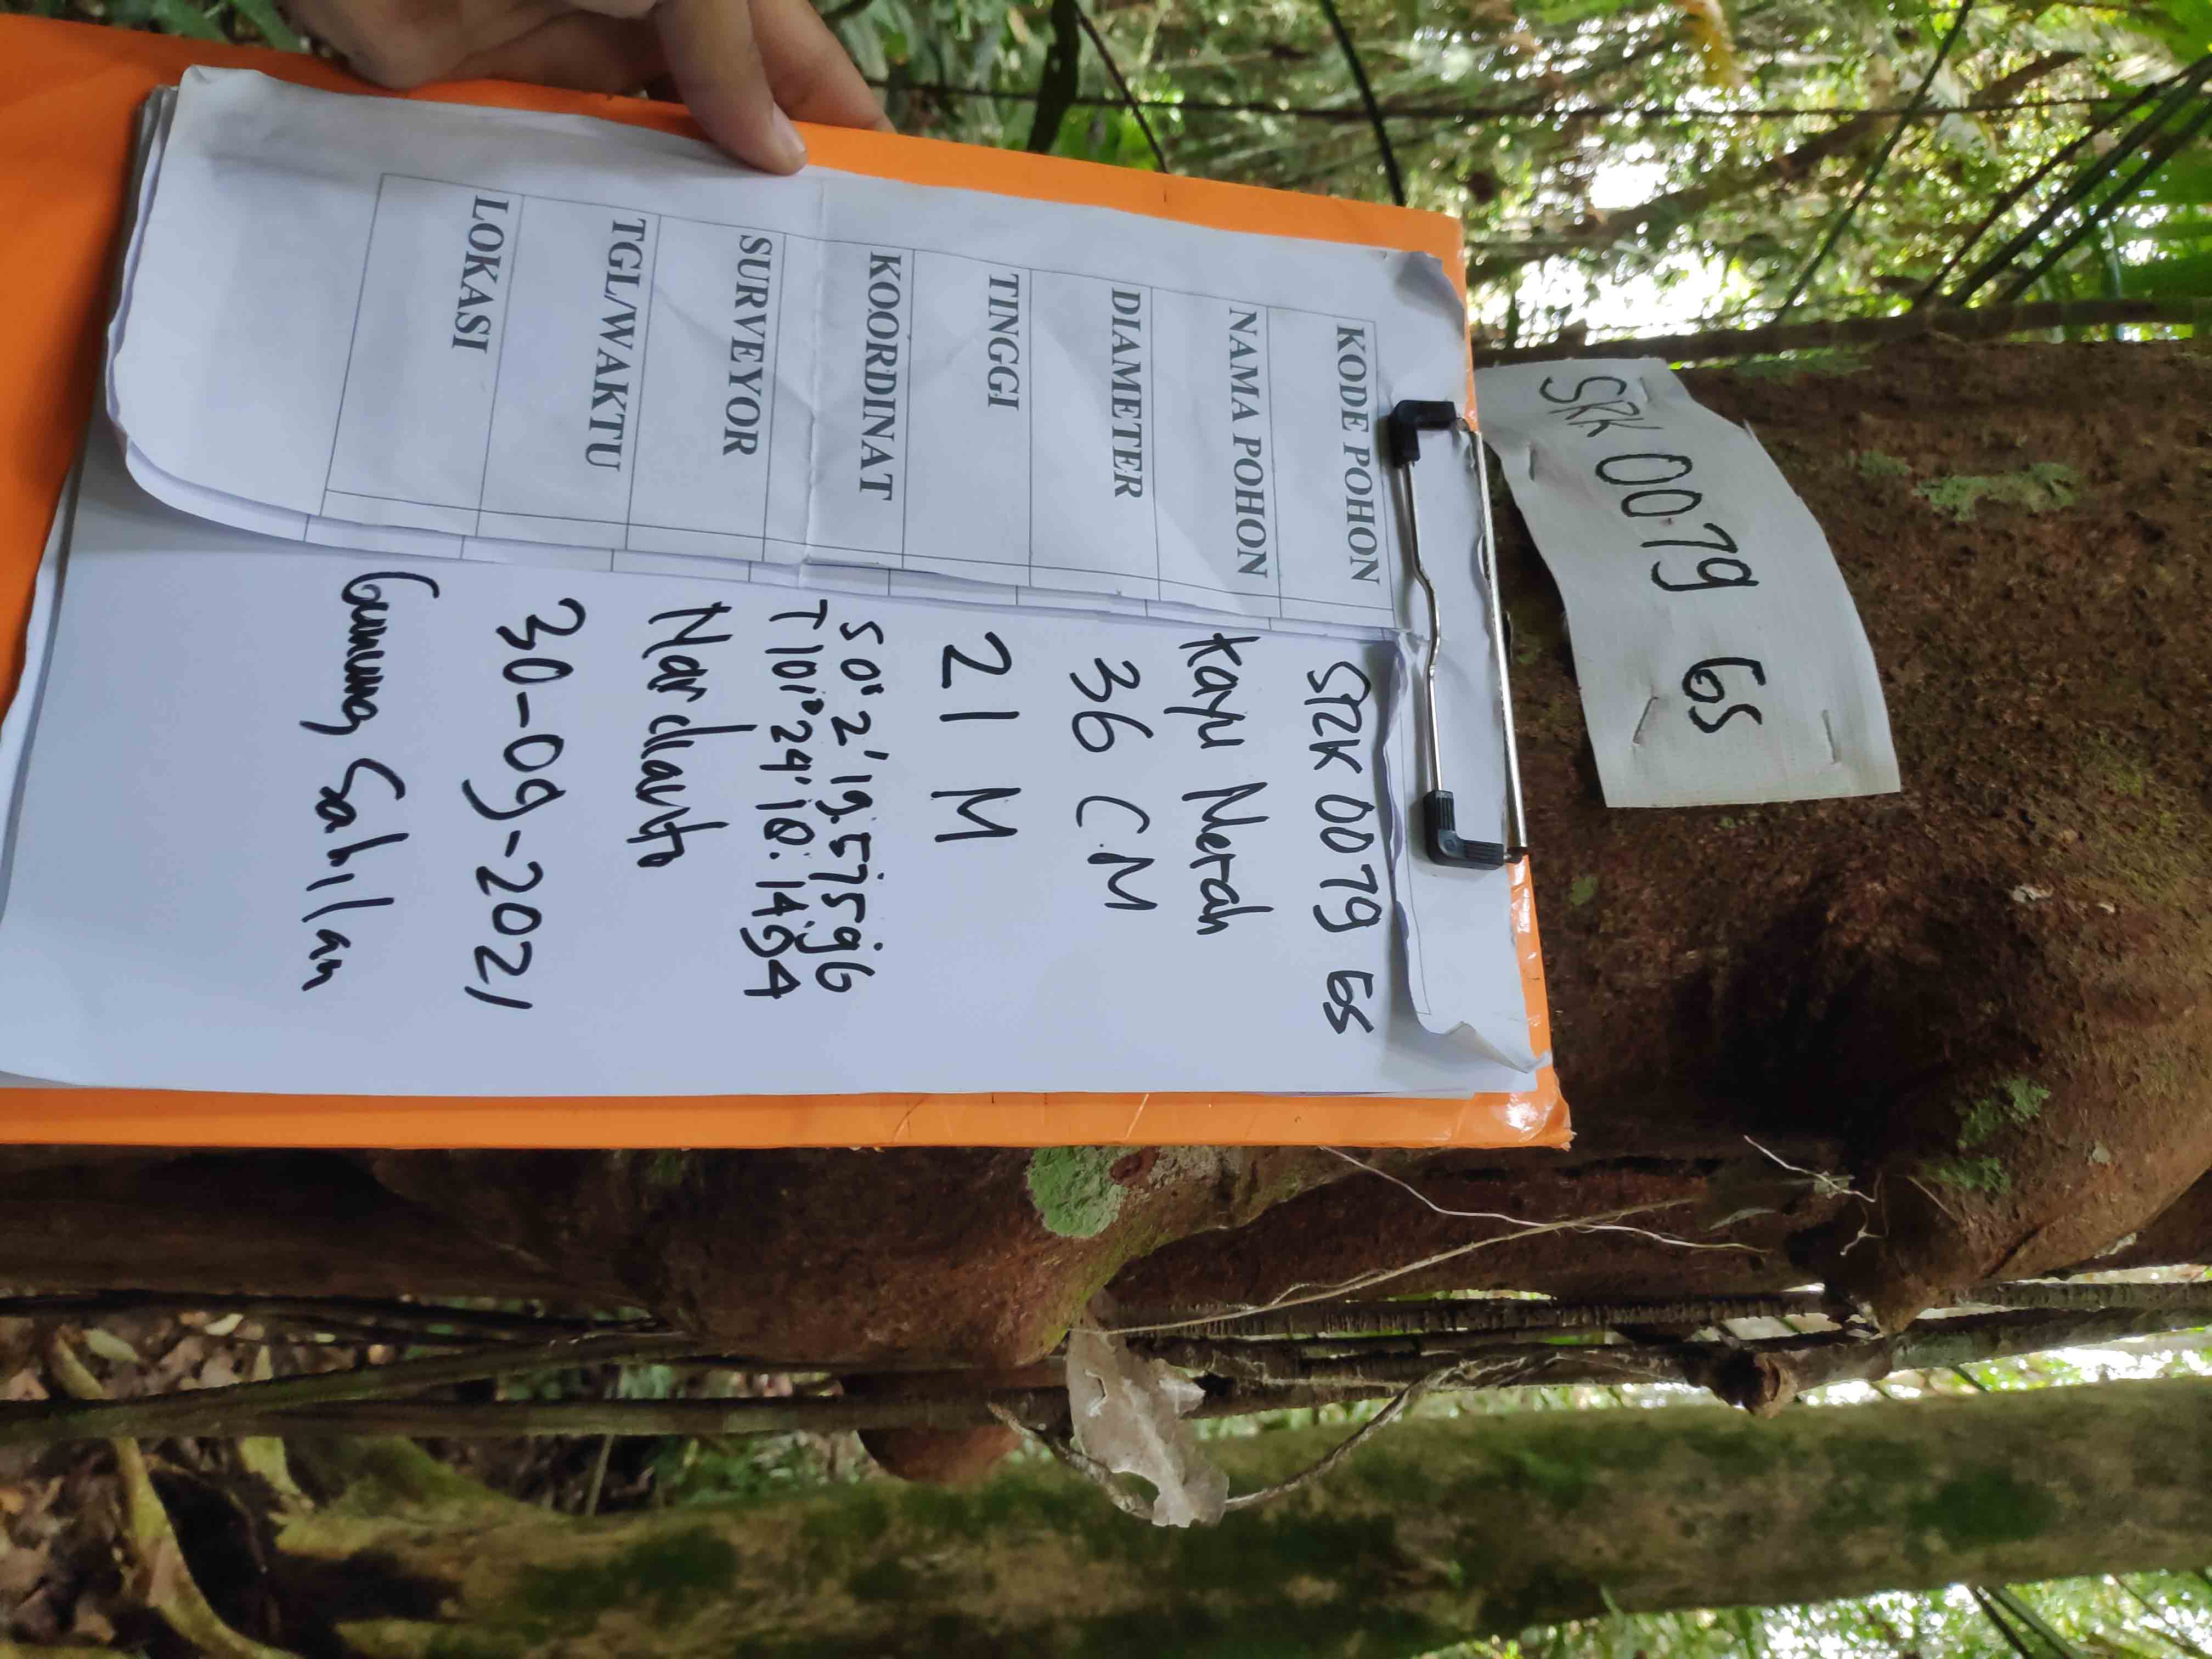 SRK 0079 GS
KODE POHON SRK 0079 GS
NAMA POHON Kayu Merah
DIAMETER 36 CM
TINGGI 21 M
KOORDINAT S 0° 2' 19.57596
T 101° 24' 18.1494
SURVEYOR Nardianto
TGL/WAKTU 30-09-2021
LOKASI Gunung Sahilan